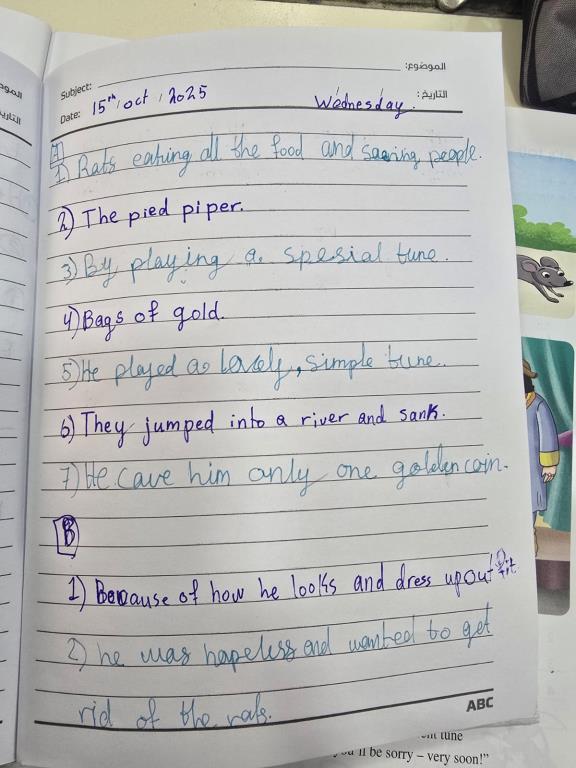 الموضوع:
Subject:
التاريخ:
Date: 15th / oct / 2025 Wednesday.
A
1) Rats eating all the food and scaring people.
2) The pied piper.
3) By playing a spesial tune.
4) Bags of gold.
5) He played a lovely, simple tune.
6) They jumped into a river and sank.
7) He cave him only one golden coin.
B
1) Because of how he looks and dress up outfit
2) he was hapeless and wanted to get
rid of the rats.
ABC
tune
'll be sorry – very soon!"